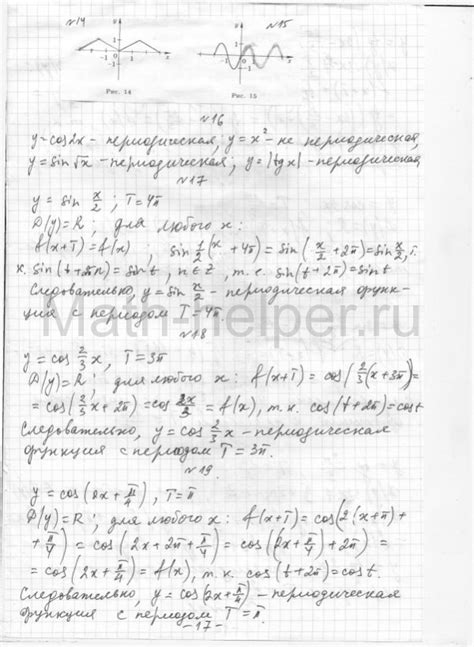 №14 №15
y x 1 -1 0 1 -1
y x 1 -1 0 1 -1
Рис. 14 Рис. 15
№16
y=cos2x - периодическая; y=x² - не периодическая,
y=sin√x - периодическая; y=|tgx| - периодическая
№17
y = sin x/2 ; T=4π
D(y)=R ; для любого x:
f(x+T)=f(x) ; sin 1/2(x+4π)=sin(x/2+2π)=sin x/2, т.
к. sin(t+2πn)=sint, n∈Z, т.е. sin(t+2π)=sint
Следовательно, y=sin x/2 - периодическая функ-
ция с периодом T=4π
Math-helper.ru
№18
y=cos 2/3 x, T=3π
D(y)=R ; для любого x: f(x+T) = cos(2/3(x+3π))=
= cos(2/3x+2π)=cos 2x/3 = f(x), т.к. cos(t+2π)=cost
Следовательно, y=cos 2/3 x - периодическая
функция с периодом T=3π.
№19.
y=cos(2x+π/4), T=π
D(y)=R ; для любого x: f(x+T)=cos(2(x+π)+
+π/4) = cos(2x+2π+π/4) = cos((2x+π/4)+2π) =
= cos(2x+π/4) = f(x), т.к. cos(t+2π)=cost.
Следовательно, y=cos(2x+π/4) - периодическая
функция с периодом T=π.
-17-